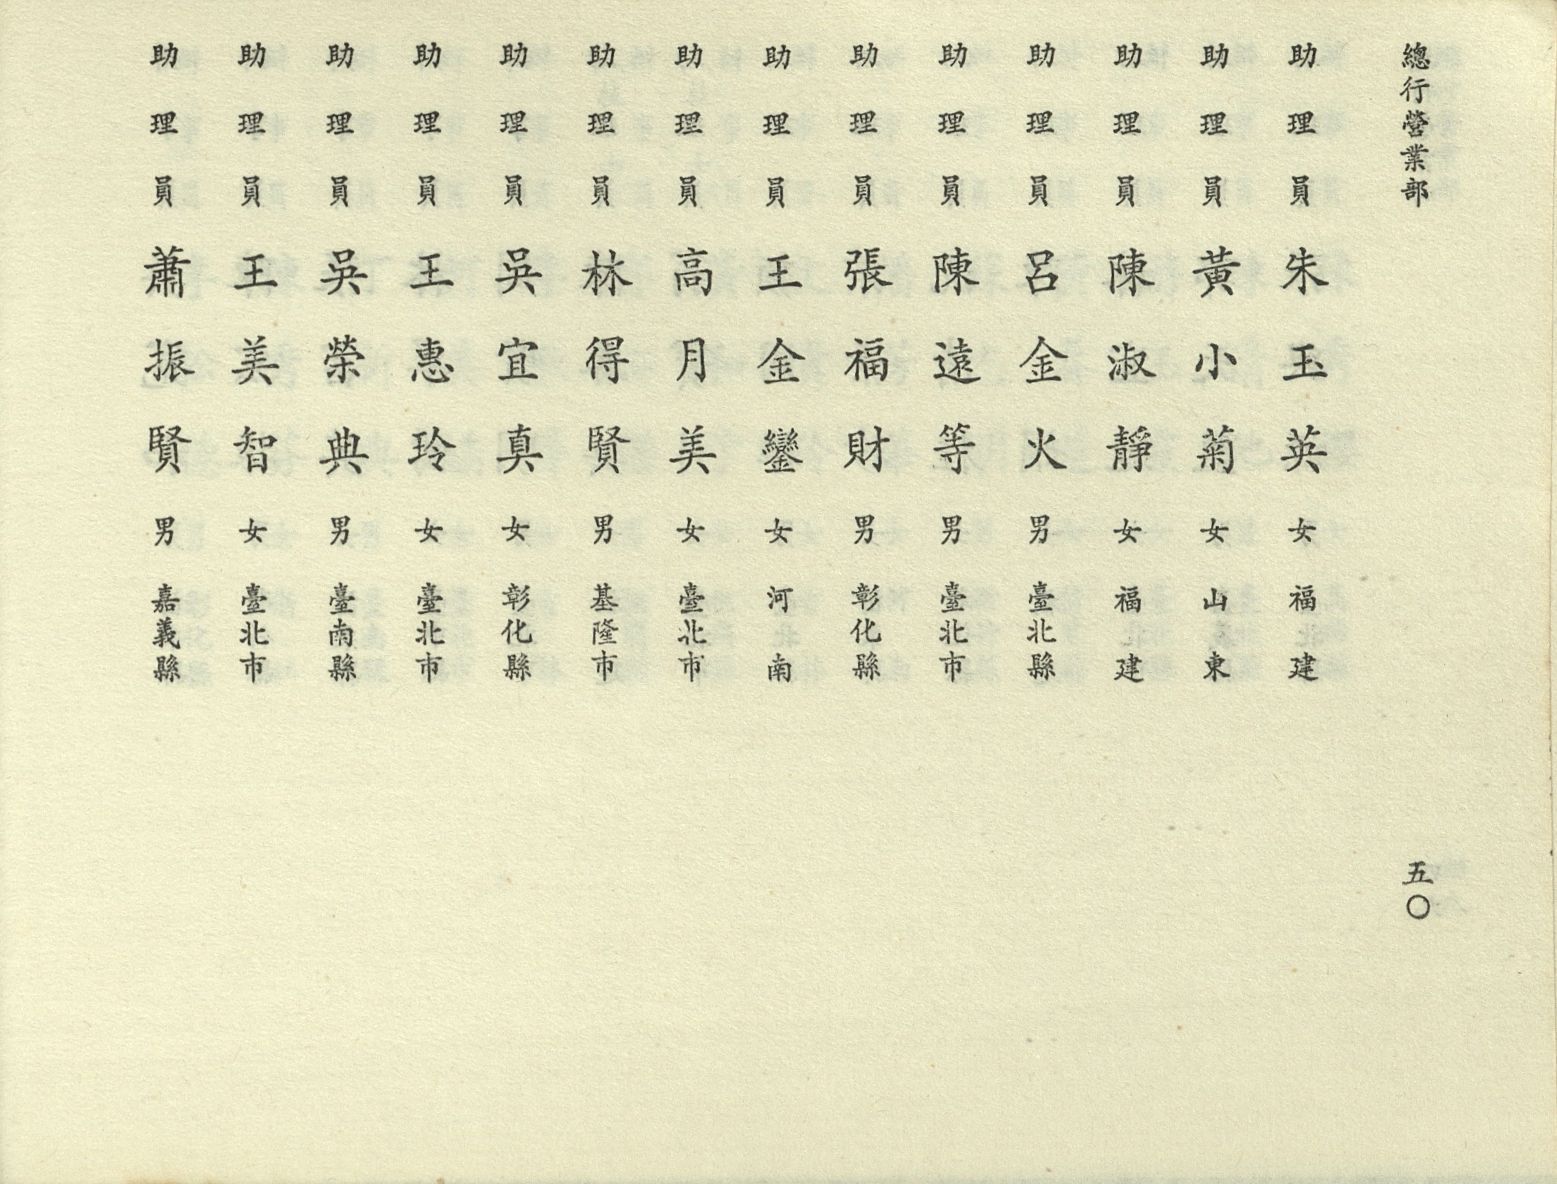 總行營業部
五〇
助理員 朱玉英 女 福建
助理員 黃小菊 女 山東
助理員 陳淑靜 女 福建
助理員 呂金火 男 臺北縣
助理員 陳遠等 男 臺北市
助理員 張福財 男 彰化縣
助理員 王金鑾 女 河南
助理員 高月美 女 臺北市
助理員 林得賢 男 基隆市
助理員 吳宜真 女 彰化縣
助理員 王惠玲 女 臺北市
助理員 吳榮典 男 臺南縣
助理員 王美智 女 臺北市
助理員 蕭振賢 男 嘉義縣